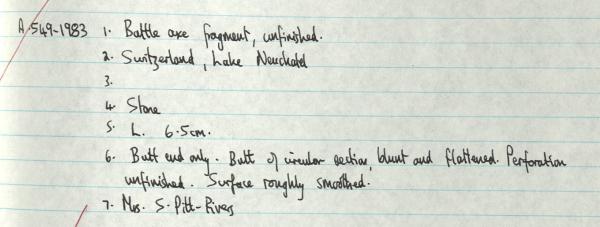 A.549-1983 1. Battle axe fragment, unfinished.
2. Switzerland, Lake Neuchatel
3.
4. Stone
5. L. 6.5cm.
6. Butt end only. Butt of circular section, blunt and flattened. Perforation
unfinished. Surface roughly smoothed.
7. Mrs. S. Pitt-Rivers